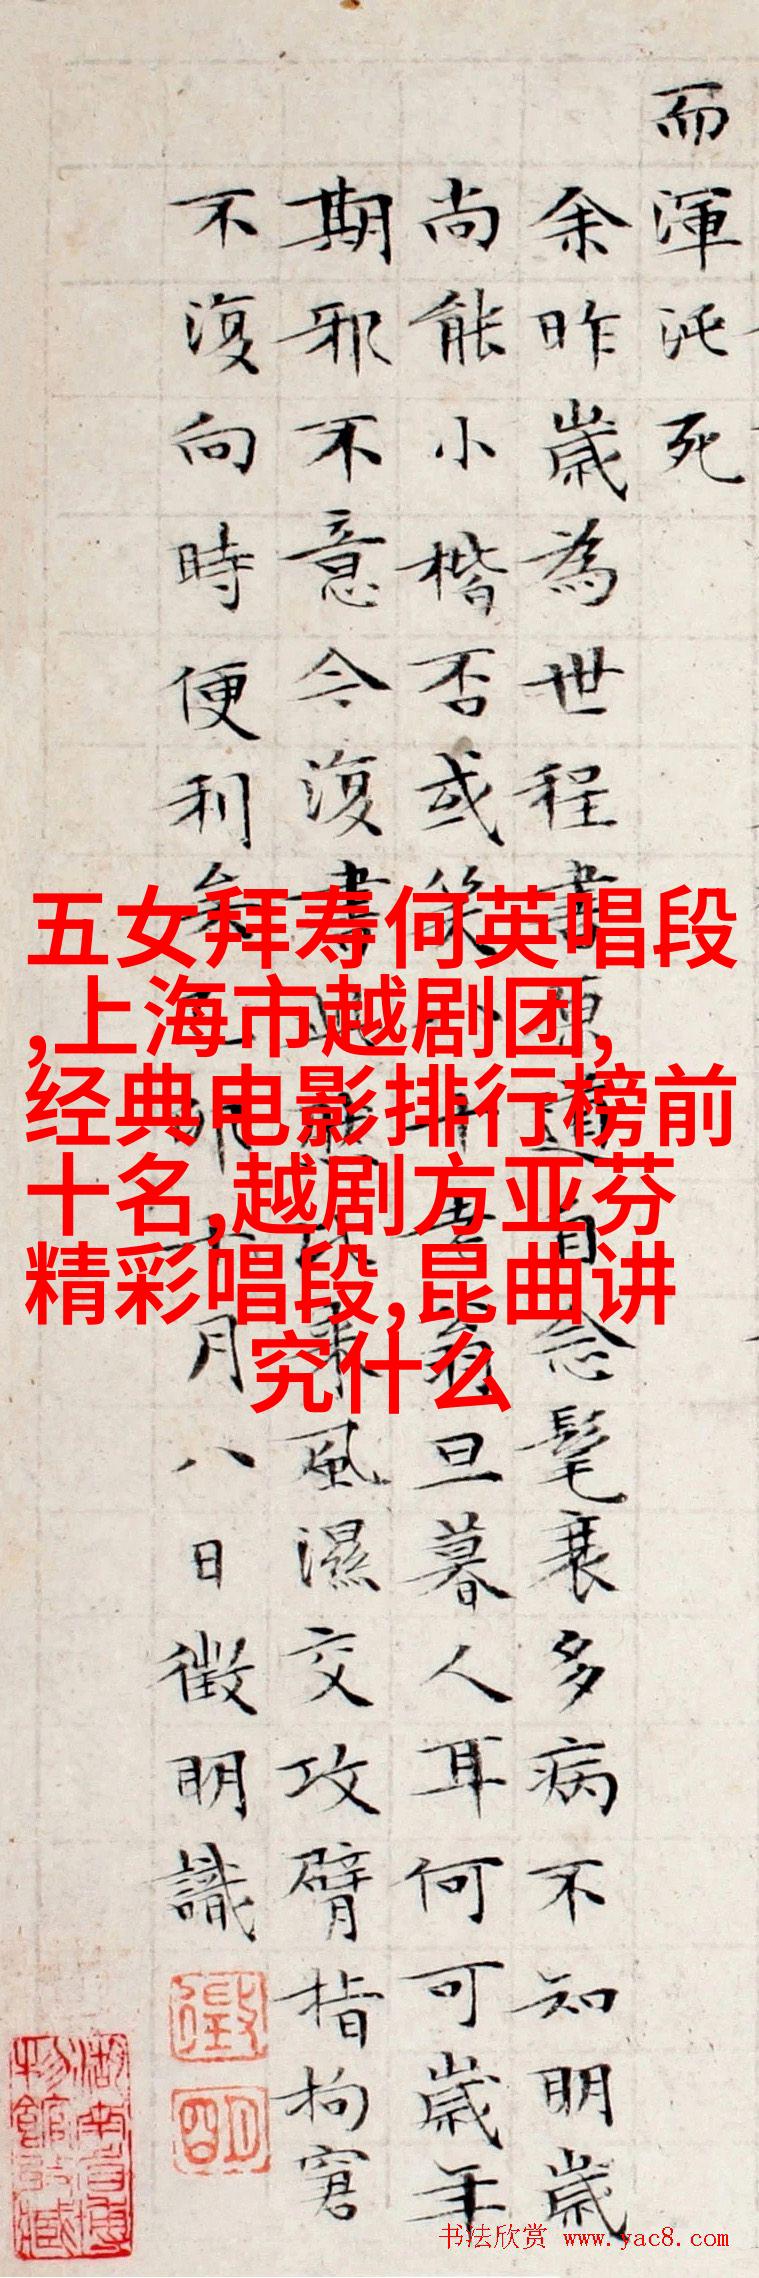 而渾沌死
余昨歲為世程書原道自念髦衰多病不知明歲
尚能小楷否或笑十老翁旦暮人耳何可歲年
期邪不意今復書眼乘風濕交攻臂指拘窘
不復向時便利矣卯月八日徵明識
徵
明
湖南省博
物館收藏
五女拜寿何英唱段
,上海市越剧团,
经典电影排行榜前
十名,越剧方亚芬
精彩唱段,昆曲讲
究什么
书法欣赏 www.yac8.com